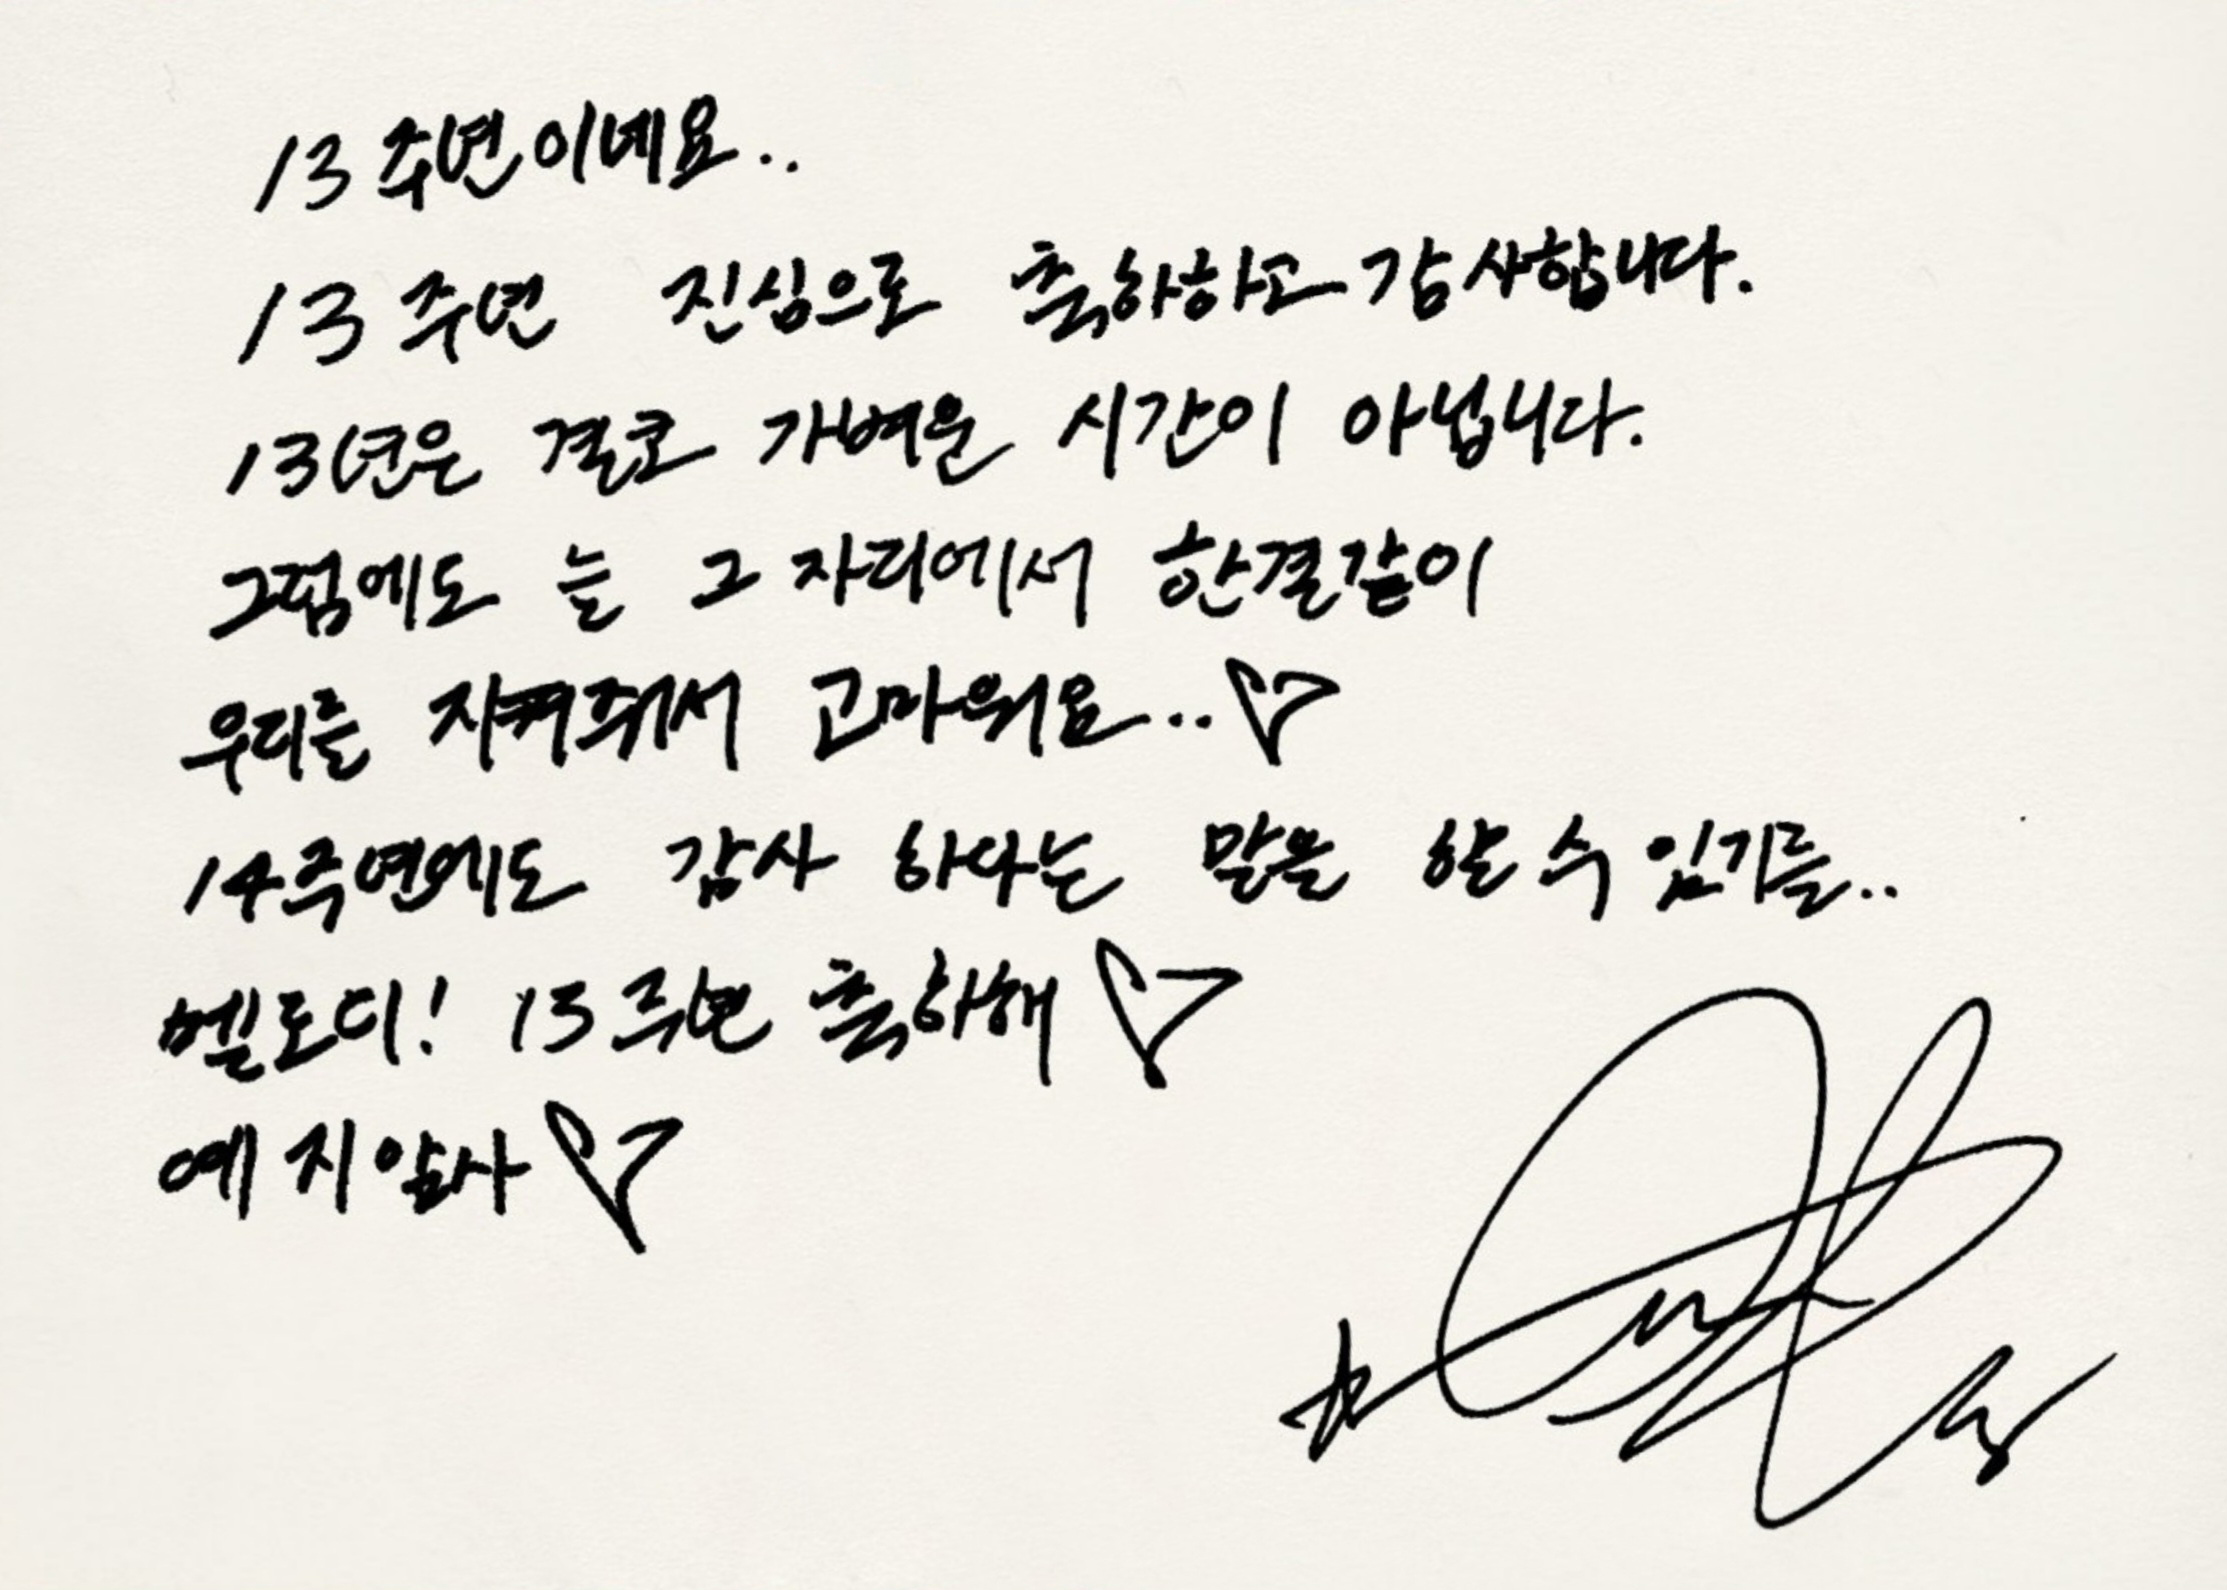 13주년이네요..
13주년 진심으로 축하하고 감사합니다.
13년은 결코 가벼운 시간이 아닙니다.
그럼에도 늘 그 자리에서 한결같이
우리를 지켜줘서 고마워요..♡
14주년에도 감사 하다는 말을 할 수 있기를..
멜로디! 13주년 축하해♡
예지앞사♡